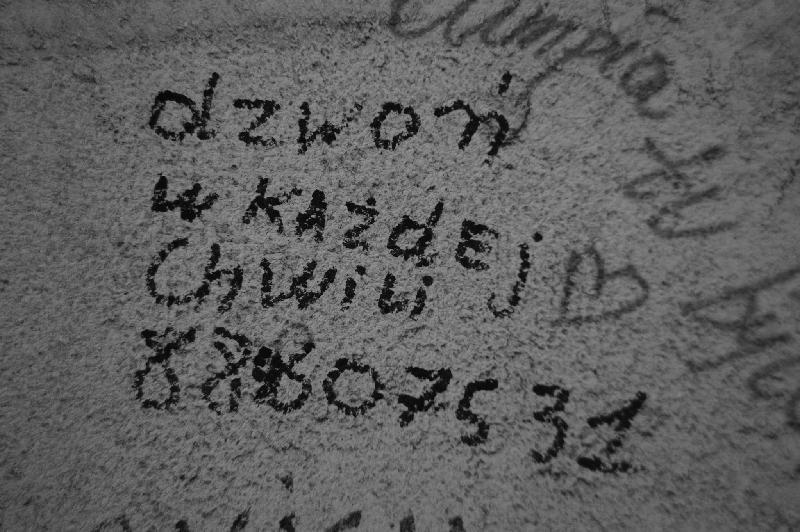 dzwoń
w każdej
chwili
88807531
tu